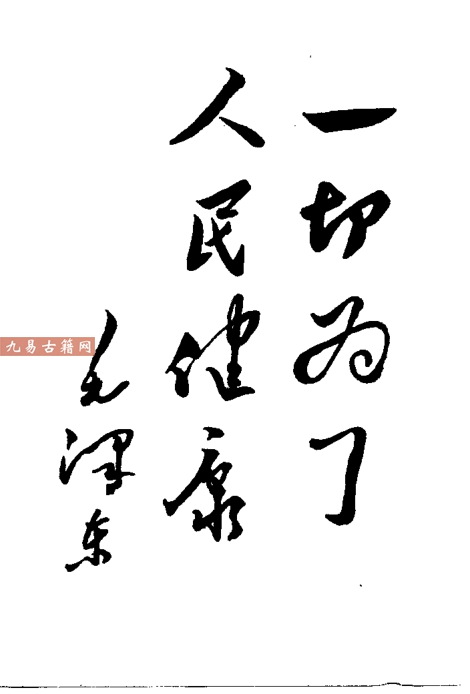 一切为了
人民健康
毛泽东
九易古籍网